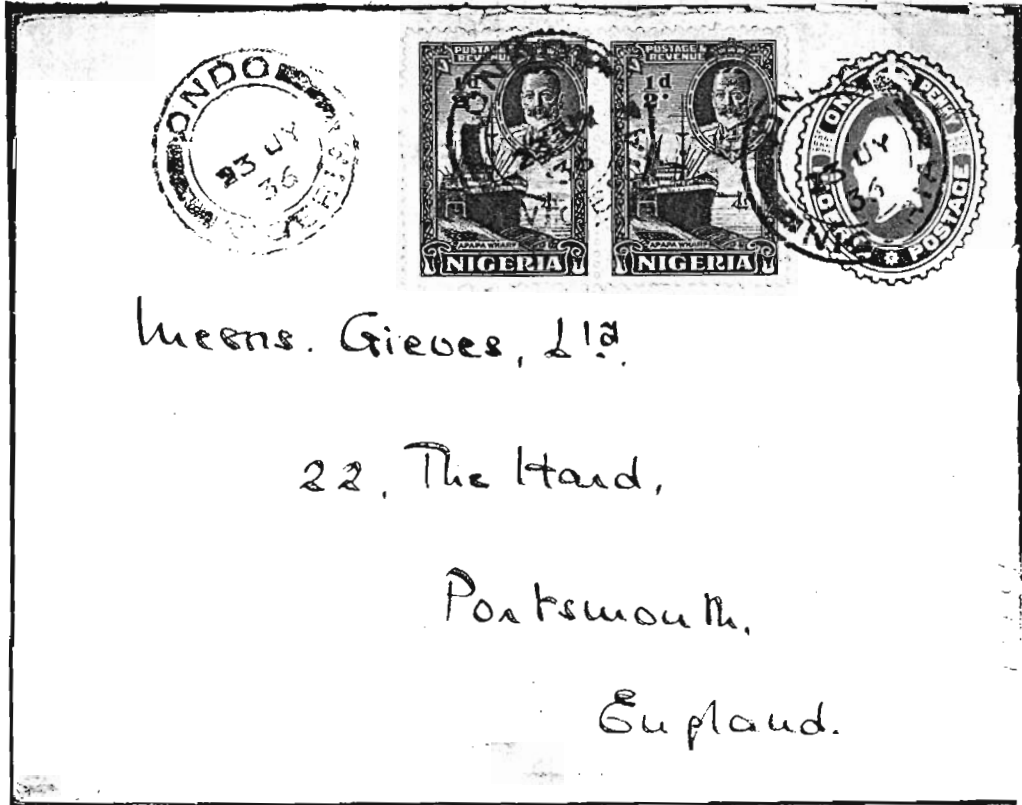 ONDO
23 JY
36
POSTAGE &
REVENUE
½d.
APAPA WHARF
NIGERIA
POSTAGE &
REVENUE
½d.
APAPA WHARF
NIGERIA
ONE PENNY
POSTAGE
JY
36
Messrs. Gieves, Ltd.
22, The Hard,
Portsmouth.
England.